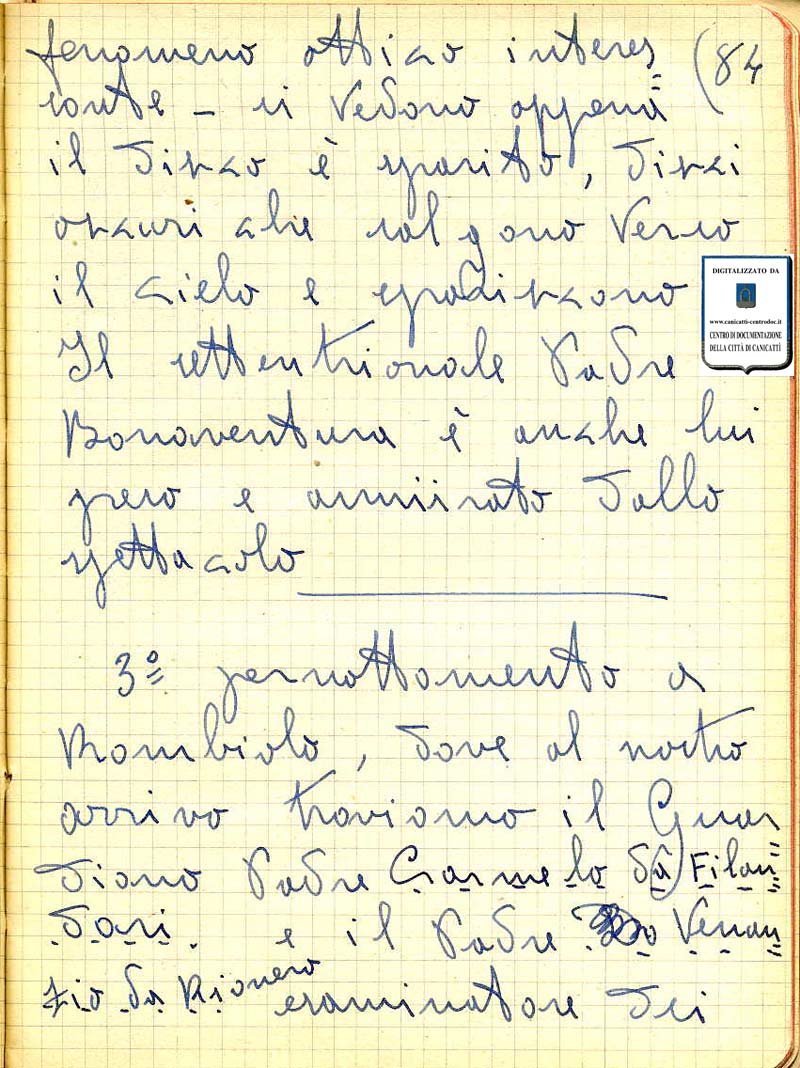 fenomeno ottico interes=
(84
sante – si vedono appena
il disco è sparito, dischi
oscuri che salgono verso
il cielo e spariscono
DIGITALIZZATO DA
www.canicatti-centrodoc.it
CENTRO DI DOCUMENTAZIONE
DELLA CITTÀ DI CANICATTÌ
Il settentrionale Padre
Bonaventura è anche lui
preso e ammirato dallo
spettacolo
3º pernottamento a
Rombiolo, dove al nostro
arrivo troviamo il Guar=
diano Padre Carmelo da Filan=
dari. e il Padre Venan=
zio da Rionero esaminatore dei